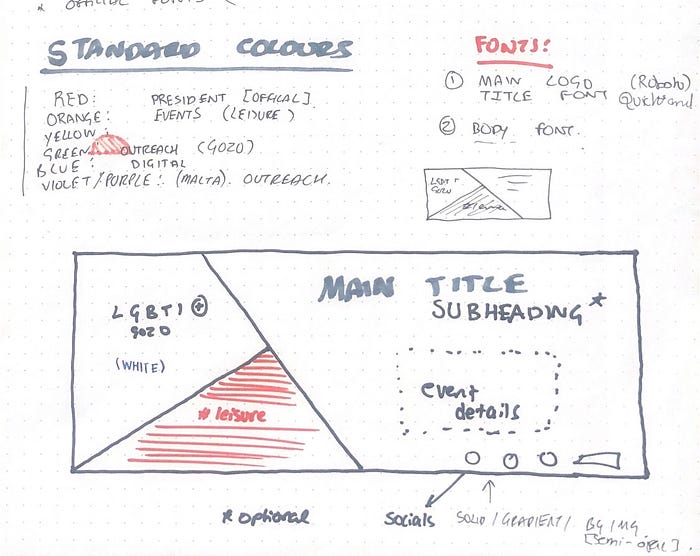 * OFFICIAL FONTS
STANDARD COLOURS
RED: PRESIDENT [OFFICAL].
ORANGE: EVENTS (LEISURE)
YELLOW:
GREEN OUTREACH (GOZO)
BLUE: DIGITAL
VIOLET/PURPLE: (MALTA). OUTREACH.
FONTS:
① MAIN LOGO (Roboto)
TITLE FONT Quicksand
② BODY FONT.
LGBTI+
GOZO
#leisure
LGBTI+
gozo
(WHITE)
#leisure
MAIN TITLE
SUBHEADING*
event
details
* optional
Socials
SOLID/GRADIENT/ BG IMG
[semi-opac].